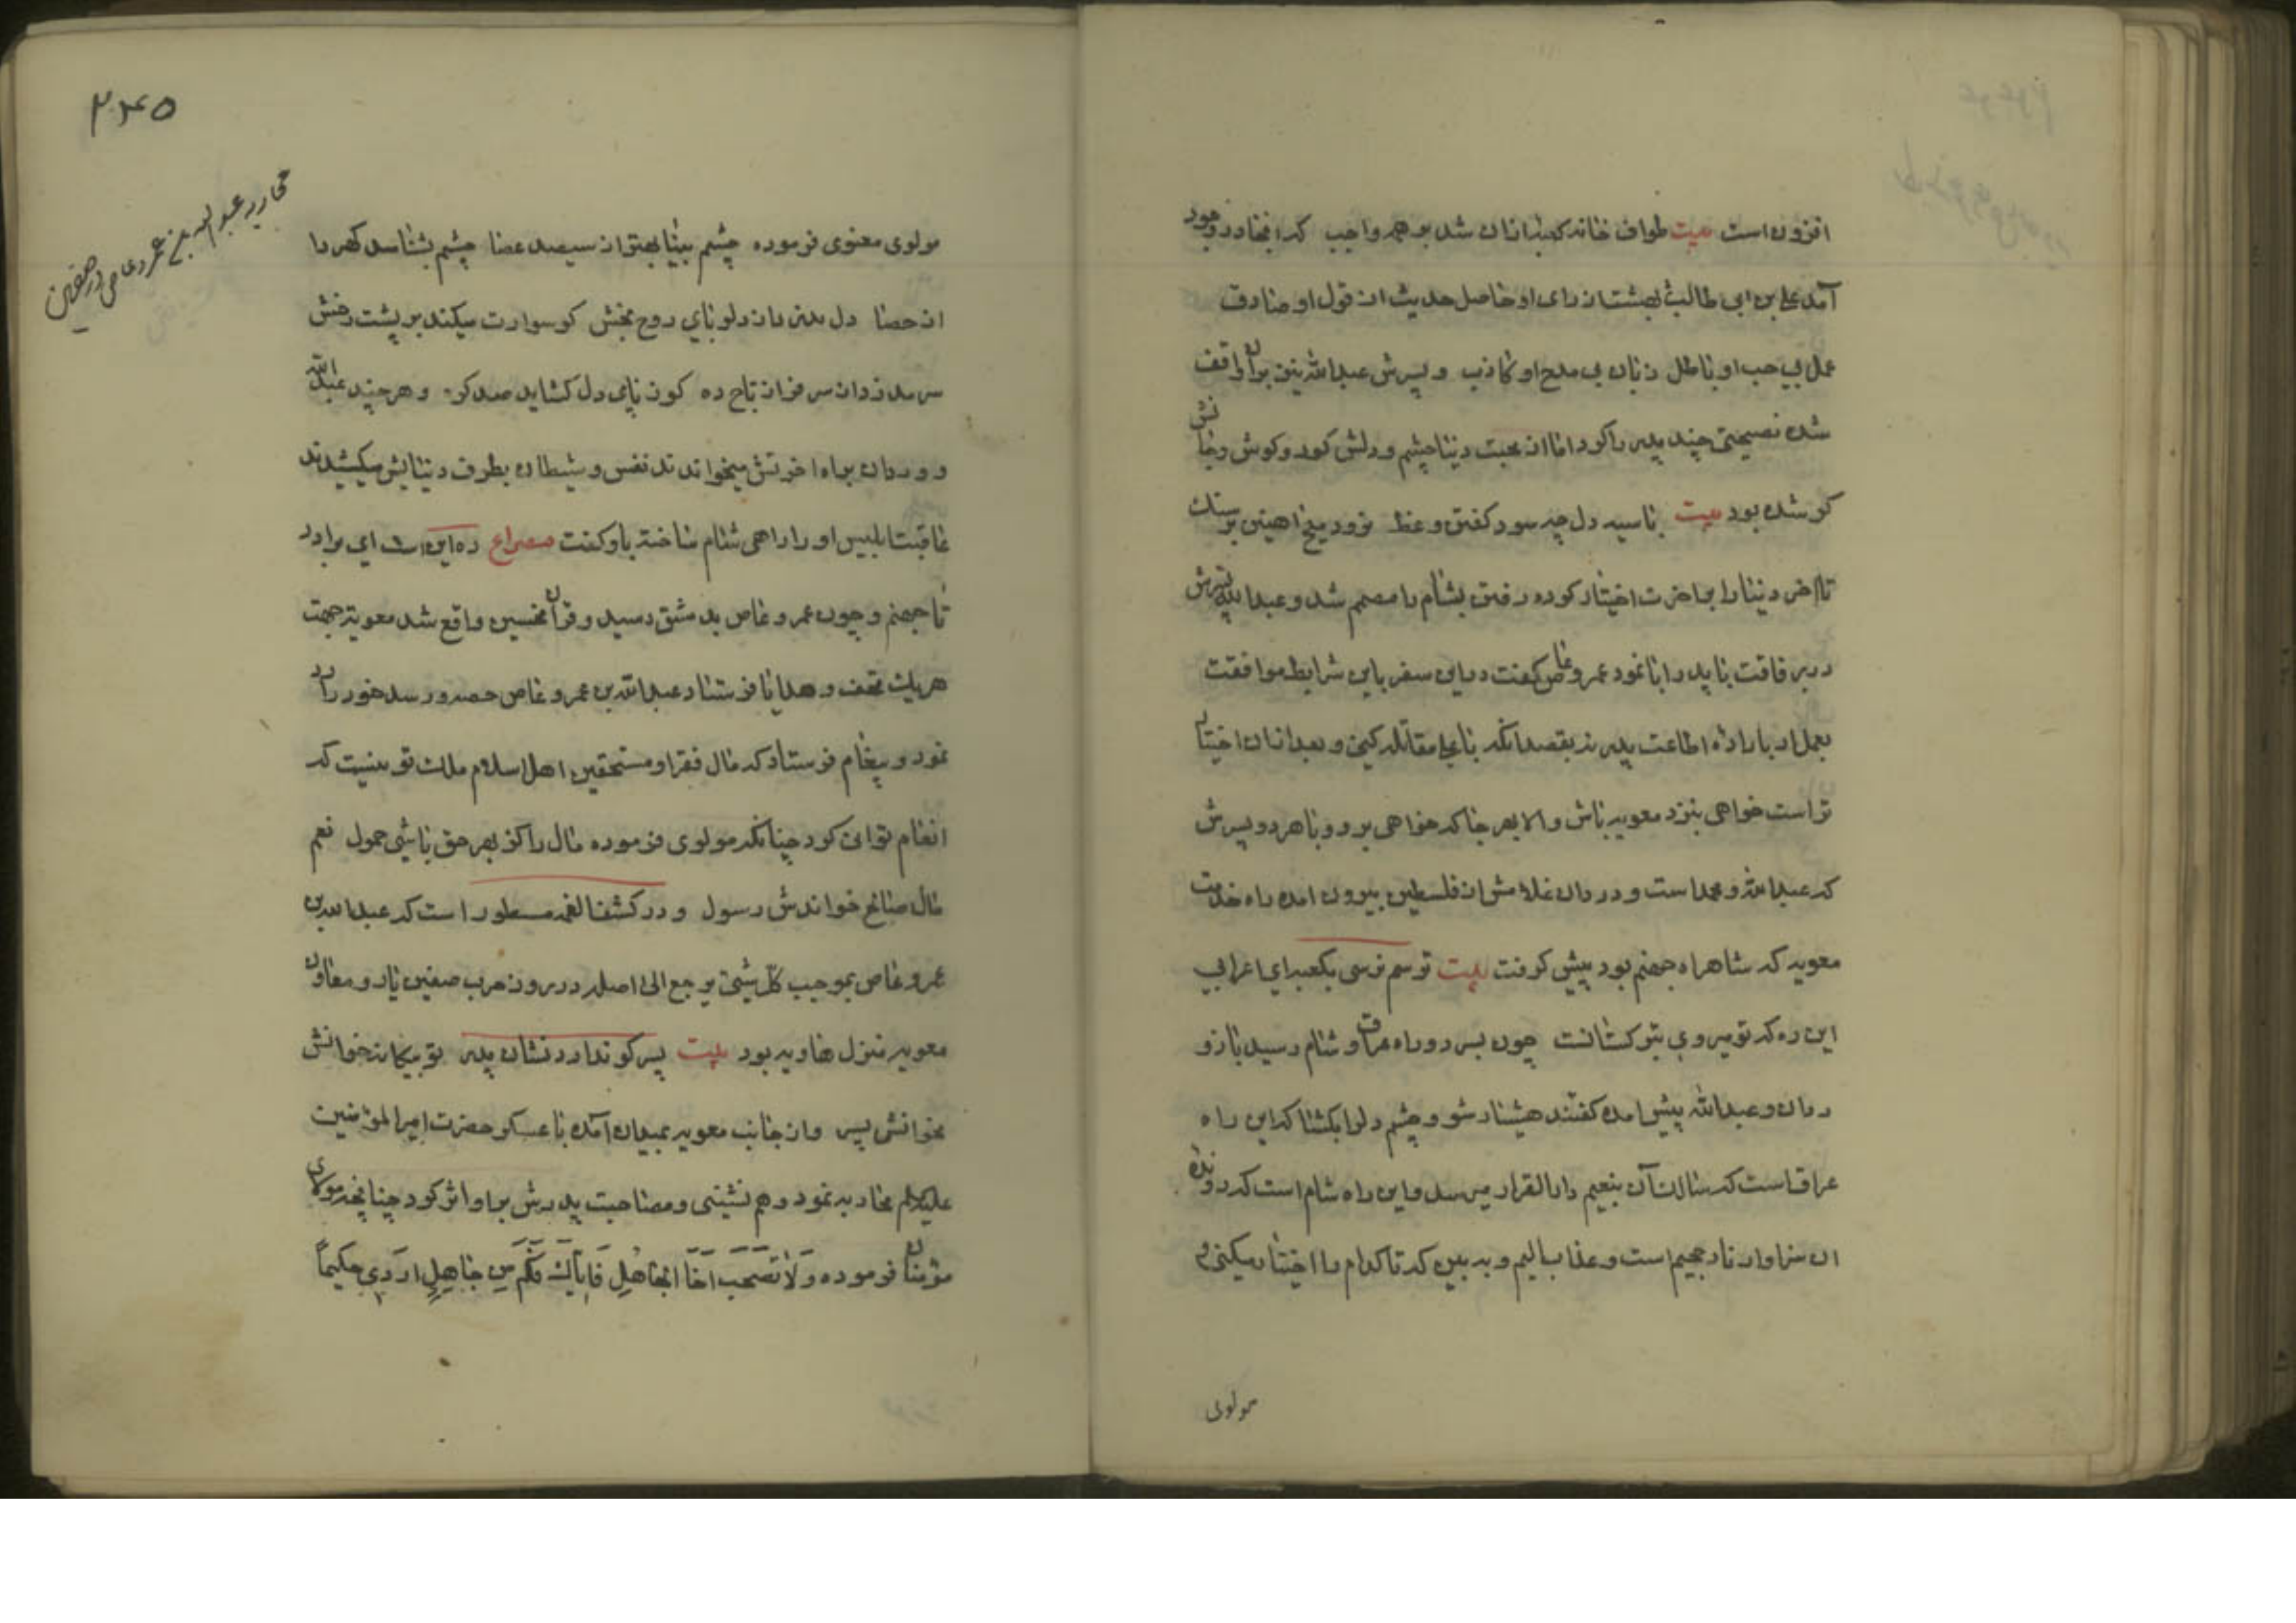 افزون است بیت طواف خانه کعبه از آن شد بر همه واجب که آنجا در وجود
آمد علی بن ابی طالب بهشت از رای او حاصل حدیث از قول او صادق
عمل بی حب او باطل زبان بی مدح او کاذب و پسرش عبدالله نیز بران واقف
شده نصیحتی چند پدر را کرد اما از محبت دنیا چشم و دلش کور و کوش و جانش
کر شده بود بیت با سیه دل چه سود کفتن وعظ نرود میخ اهنین بر سنک
تا اخر دنیا را بر اخرت اختیار کرده رفتن بشام را مصمم شد و عبدالله پسرش
در رفاقت با پدر ابا نمود عمرو عاص کفت در این سفر باین شرایط موافقت
بعمل ار باراده اطاعت پدر نه بقصد انکه با علی مقاتله کنی و بعد از آن اختیار
تراست خواهی بنزد معویه باش و الا بهر جا که خواهی برو و با هر دو پسرش
که عبدالله و محمد است و وردان غلامش از فلسطین بیرون امده راه خدمت
معویه که شاهراه جهنم بود پیش کرفت بیت ترسم نرسی بکعبه ای اعرابی
این ره که تو میروی بترکستانست چون بسر دو راه عراق و شام رسید باز و
ردان و عبدالله پیش امده کفتند هشیار شو و چشم دل را بکشا که این راه
عراقست که سالک آن بنعیم دارالقرار میرسد و این راه شام است که رونده
ان سزاوار نار جحیم است و عذاب الیم و به بین که تا کدام را اختیار میکنی و
مولوی
۲۴۵
محاربه عبدالله بن عمرو عاص در صفین
مولوی معنوی فرموده چشم بینا بهتر از سیصد عصا چشم بشناسد کهر را
از حصا دل بدین دان دلربای روح بخش کو سوارت میکند بر پشت رخش
سر بده زدان سرفراز تاج ده کو ز پای دل کشاید صد کره و هر چند عبدالله
و وردان براه اخرتش میخواندند نفس و شیطان بطرف دنیایش میکشیدند
عاقبت ابلیس او را راهی شام ساخته باو کفت مصراع ره این است ای برادر
تا جهنم و چون عمرو عاص بدمشق رسید و قران نحسین واقع شد معویة جهت
هر یک تحف و هدایا فرستاد عبدالله بن عمرو عاص حصه و رسد خود را رد
نمود و پیغام فرستاد که مال فقرا و مستحقین اهل اسلام ملک تو نیست که
انعام توانی کرد چنانکه مولوی فرموده مال را کز بهر حق باشی حمول نعم
مال صالح خواندش رسول و در کشف الغمه مسطور است که عبدالله بن
عمرو عاص بموجب کل شیئ یرجع الی اصله در روز حرب صفین یار و معاون
معویه منزل هاویه بود بیت پسر کو ندارد نشان پدر تو بیکانه خوانش
مخوانش پسر و از جانب معویه بمیدان آمده با عسکر حضرت امیر المؤمنین
علیه السلم محاربه نمود و هم نشینی و مصاحبت پدرش بر او اثر کرد چنانچه مولای
مؤمنان فرموده وَلَا تَصْحَبْ اَخَا الْجَاهِلِ فَاِیَّاكَ فَکَمْ مِن جَاهِلٍ اَرْدَی حَکِیمًا